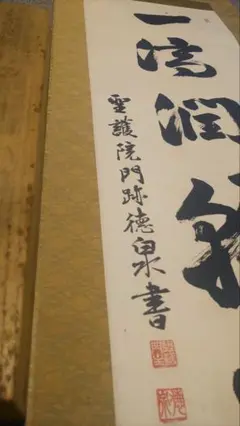 一滴潤乾
聖護院門跡德泉書